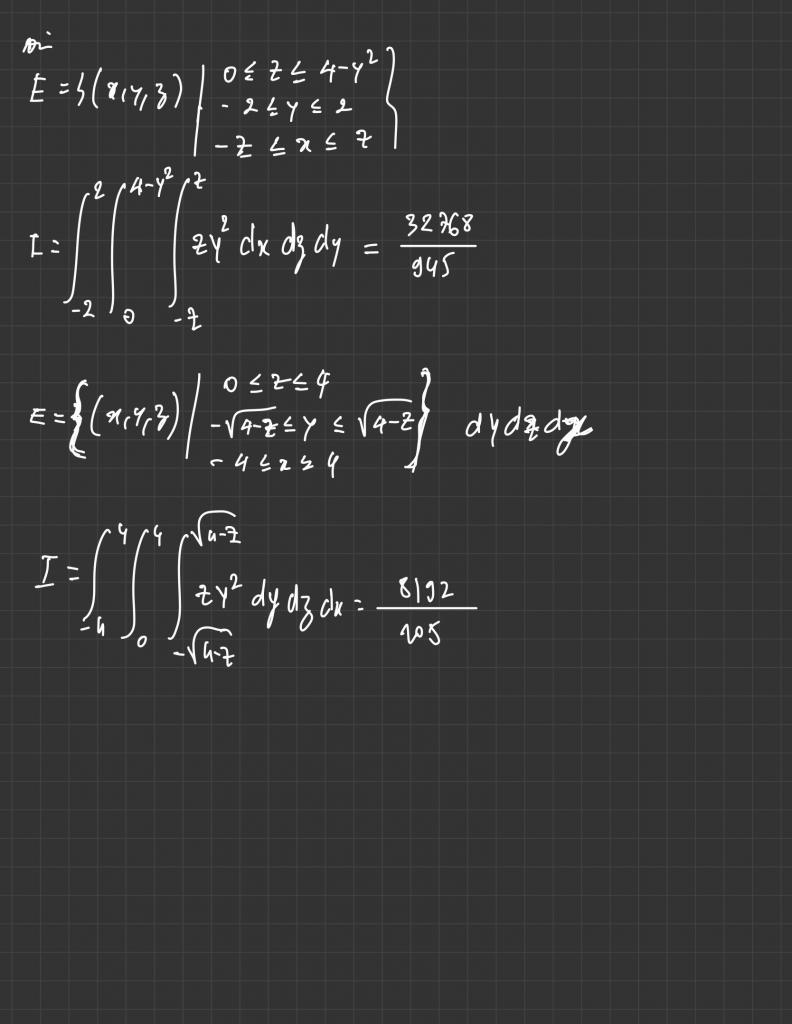 E = {(x,y,z) | 0 ≤ z ≤ 4-y²
- 2 ≤ y ≤ 2
- z ≤ x ≤ z }
I = ∫_{-2}^{2} ∫_{0}^{4-y²} ∫_{-z}^{z} zy² dx dz dy = 32768/945
E = {(x,y,z) | 0 ≤ z ≤ 4
-√(4-z) ≤ y ≤ √(4-z) } dy dz dx
- 4 ≤ x ≤ 4
I = ∫_{-4}^{4} ∫_{0}^{4} ∫_{-√(4-z)}^{√(4-z)} zy² dy dz dx = 8192/105